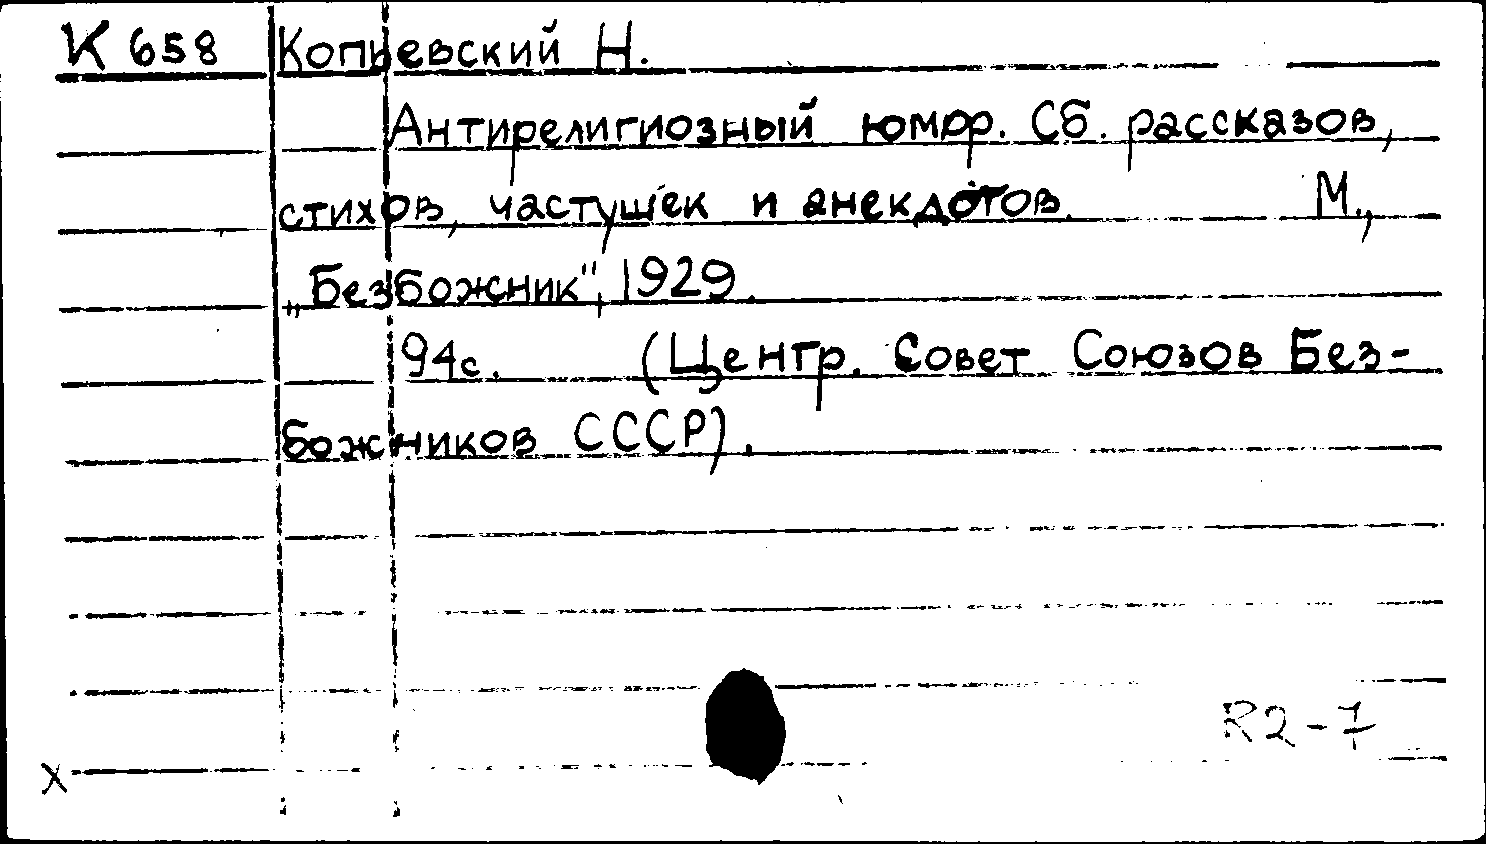 К 658 Копьевский Н.
Антирелигиозный юмор. Сб. рассказов,
стихов, частушек и анекдотов. М.,
„Безбожник", 1929.
94с. (Центр. Совет Союзов Без-
божников СССР).
R2-7
x